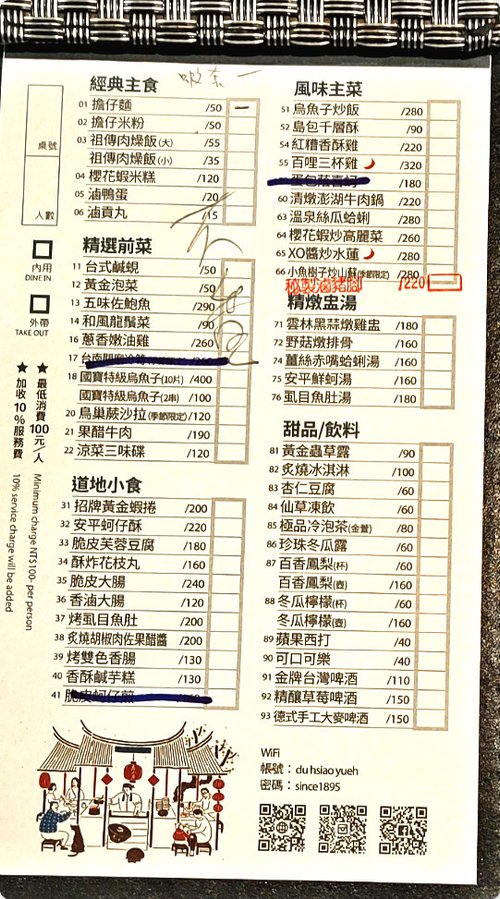 經典主食
01 擔仔麵 /50
02 擔仔米粉 /50
03 祖傳肉燥飯(大) /55
祖傳肉燥飯(小) /35
04 櫻花蝦米糕 /120
05 滷鴨蛋 /20
06 滷貢丸 /15
精選前菜
11 台式鹹蜆 /50
12 黃金泡菜 /50
13 五味佐鮑魚 /290
14 和風龍鬚菜 /90
16 蔥香嫩油雞 /260
17
18 國寶特級烏魚子(10片) /400
國寶特級烏魚子(2串) /100
20 鳥巢蕨沙拉(季節限定) /120
21 果醋牛肉 /190
22 涼菜三味碟 /120
道地小食
31 招牌黃金蝦捲 /200
32 安平蚵仔酥 /220
33 脆皮芙蓉豆腐 /180
34 酥炸花枝丸 /160
35 脆皮大腸 /240
36 香滷大腸 /120
37 烤虱目魚肚 /200
38 炙燒胡椒肉佐果醋醬 /200
39 烤雙色香腸 /130
40 香酥鹹芋糕 /130
41 脆皮蚵仔煎
風味主菜
51 烏魚子炒飯 /280
52 島包千層酥 /90
54 紅糟香酥雞 /220
55 百哩三杯雞 /320
/180
60 清燉澎湖牛肉鍋 /220
63 溫泉絲瓜蛤蜊 /280
64 櫻花蝦炒高麗菜 /260
65 XO醬炒水蓮 /280
66 小魚樹子炒山蘇(季節限定) /280
秘製滷豬腳 /220
精燉盅湯
71 雲林黑蒜燉雞盅 /180
72 野菇燉排骨 /160
74 薑絲赤嘴蛤蜊湯 /160
75 安平鮮蚵湯 /160
76 虱目魚肚湯 /180
甜品/飲料
81 黃金蟲草露 /90
82 炙燒冰淇淋 /100
83 杏仁豆腐 /60
84 仙草凍飲 /60
85 極品冷泡茶(金萱) /80
86 珍珠冬瓜露 /60
87 百香鳳梨(杯) /60
百香鳳梨(壺) /160
88 冬瓜檸檬(杯) /60
冬瓜檸檬(壺) /160
89 蘋果西打 /40
90 可口可樂 /40
91 金牌台灣啤酒 /110
92 精釀草莓啤酒 /150
93 德式手工大麥啤酒 /150
桌號
人數
內用
DINE IN
外帶
TAKE OUT
★ 最低消費100元/人 Minimum charge NT$100- per person
★ 加收10%服務費 10% service charge will be added
WiFi
帳號：du hsiao yueh
密碼：since1895